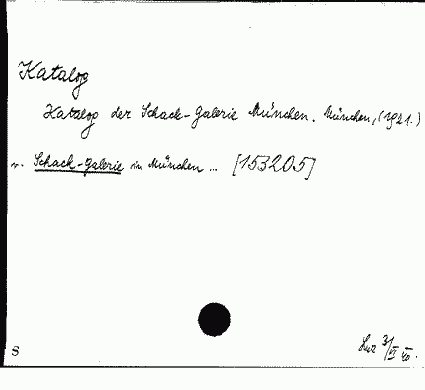 Katalog
Katalog der Schack-Galerie München. München, (1921.)
v. Schack-Galerie in München ... [153205]
S